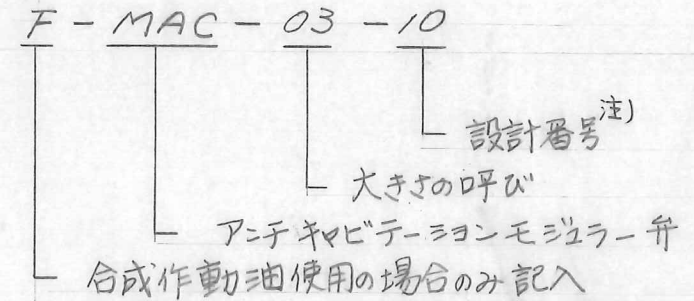 F-MAC-03-10
設計番号注)
大きさの呼び
アンチキャビテーションモジュラー弁
合成作動油使用の場合のみ記入